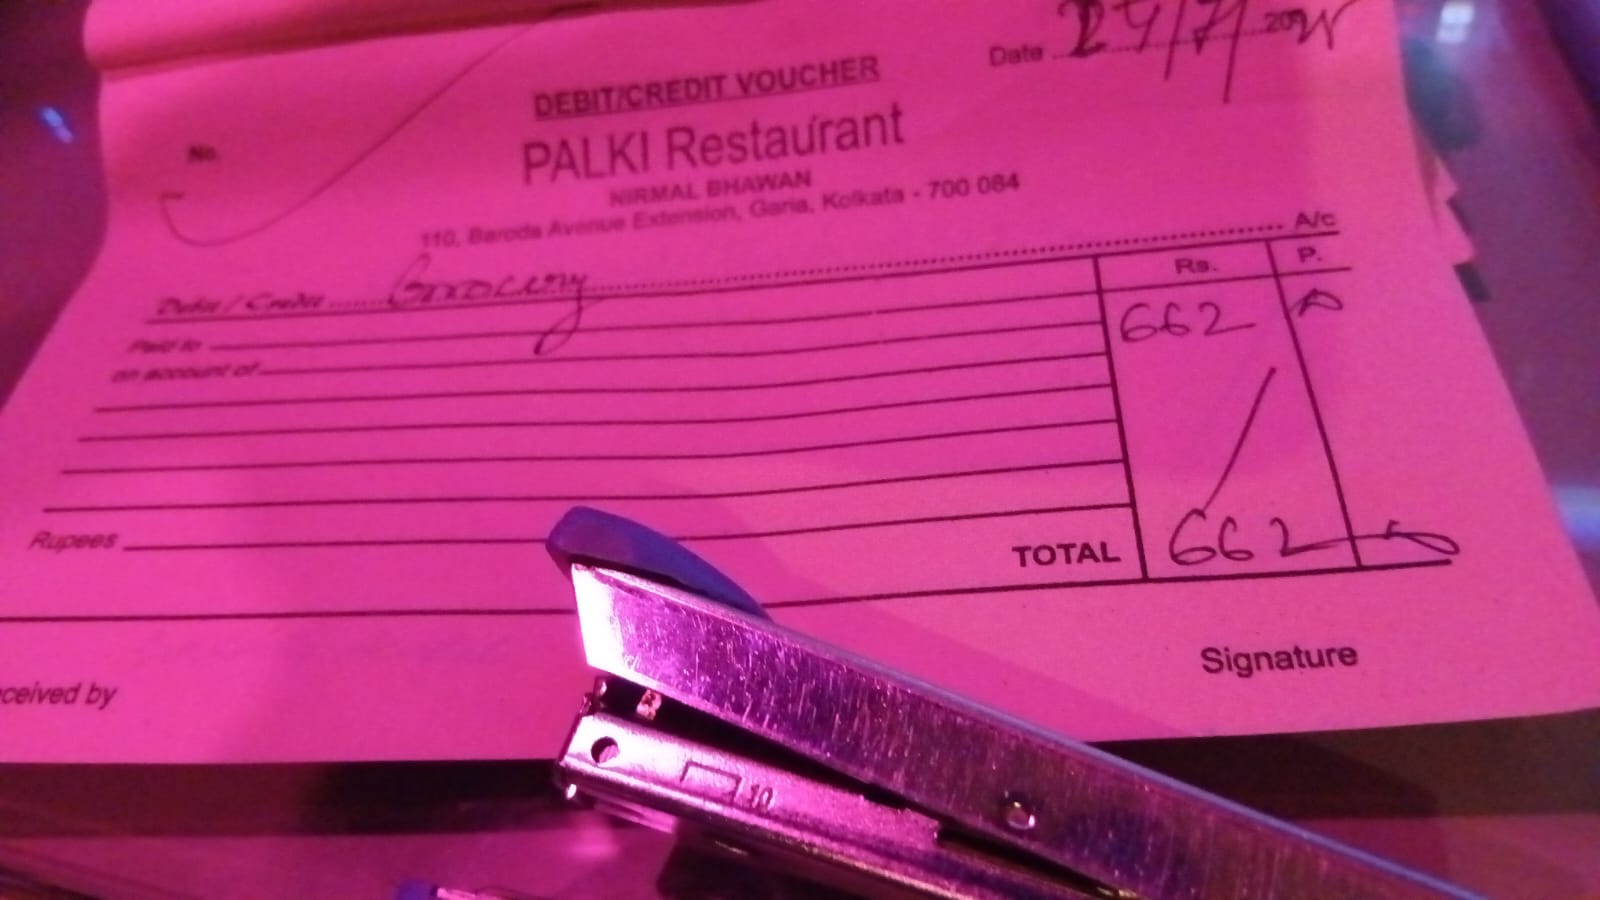 Date 24/7/
DEBIT/CREDIT VOUCHER
No.
PALKI Restaurant
NIRMAL BHAWAN
110, Baroda Avenue Extension, Garia, Kolkata - 700 084
Debit / Credit Grocery A/c
Rs. P.
Paid to 662
on account of
Rupees
TOTAL 662
Signature
ceived by
10